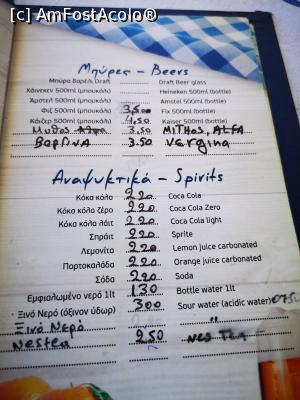 [c] AmFostAcolo®
Μπύρες – Beers
Μπύρα Βαρέλι Draft Draft Beer glass
Χάινεκεν 500ml (μπουκάλι) Heineken 500ml (bottle)
Άμστελ 500ml (μπουκάλι) Amstel 500ml (bottle)
Φιξ 500ml (μπουκάλι) 3,50 Fix 500ml (bottle)
Κάιζερ 500ml (μπουκάλι) 4,50 Kaiser 500ml (bottle)
Μυθος Αλφα 3.50 MITHOS, ALFA
Βαργινα 3.50 Vergina
Αναψυκτικά – Spirits
Κόκα κόλα 220 Coca Cola
Κόκα κόλα ζέρο 220 Coca Cola Zero
Κόκα κόλα λάιτ 220 Coca Cola light
Σπράιτ 220 Sprite
Λεμονίτα 220 Lemon juice carbonated
Πορτοκαλάδα 220 Orange juice carbonated
Σόδα 220 Soda
Εμφιαλωμένο νερό 1lt 130 Bottle water 1lt
Ξινό Νερό (όξινον ύδωρ) 300 Sour water (acidic water)
Ξινό Νερό "
Nestea 250